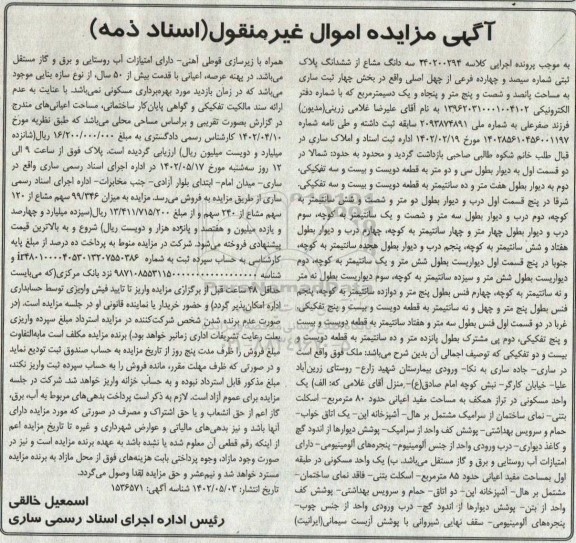 آگهی مزایده اموال غیرمنقول(اسناد ذمه)
به موجب پرونده اجرایی کلاسه ۳۴۰۲۰۰۲۹۴ سه دانگ مشاع از ششدانگ پلاک
ثبتی شماره سیصد و چهارده فرعی از چهل اصلی واقع در بخش چهار ثبت ساری
به مساحت پانصد و شصت و پنج متر و پنجاه و یک دسیمترمربع که با شماره دفتر
الکترونیکی ۱۳۹۶۲۰۳۱۰۰۰۱۰۰۴۱۰۲ به نام آقای علیرضا غلامی زرینی(مدیون)
فرزند صفرعلی به شماره ملی ۲۰۹۳۸۷۴۸۹۱ سابقه ثبت داشته و طی نامه شماره
۱۴۰۲۸۵۶۱۰۴۵۶۰۰۱۱۹۷ مورخ ۱۴۰۲/۰۲/۱۹ اداره ثبت اسناد و املاک ساری در
قبال طلب خانم شکوه طالبی صاحبی بازداشت گردید و محدود به حدود: شمالا در
دو قسمت اول به دیوار بطول سی و دو متر به قطعه دویست و بیست و سه تفکیکی،
دوم به دیوار بطول هفت متر و ده سانتیمتر به قطعه دویست و بیست و سه تفکیکی،
شرقا در پنج قسمت اول درب و دیوار بطول دو متر و شصت و شش سانتیمتر به
کوچه، دوم درب و دیوار بطول سه متر و شصت و یک سانتیمتر به کوچه، سوم
درب و دیوار بطول چهار متر و چهار سانتیمتر به کوچه، چهارم درب و دیوار بطول
هفتاد و شش سانتیمتر به کوچه، پنجم درب و دیوار بطول هجده سانتیمتر به کوچه،
جنوبا در پنج قسمت اول دیواریست بطول شش متر و یک سانتیمتر به کوچه، دوم
دیواریست بطول شش متر و سیزده سانتیمتر به کوچه، سوم دیواریست بطول نه متر
و نه سانتیمتر به کوچه، چهارم فنس بطول پنج متر و دوازده سانتیمتر به کوچه، پنجم
فنس بطول پنج متر و چهل و نه سانتیمتر به قطعه دویست و بیست و پنج تفکیکی،
غربا در دو قسمت اول فنس بطول سه متر و هفتاد سانتیمتر به قطعه دویست و بیست
و پنج تفکیکی، دوم پی مشترک بطول پانزده متر و ده سانتیمتر به قطعه دویست و
بیست و دو تفکیکی که توصیف اجمالی آن بدین شرح می‌باشد: ملک فوق واقع است
در ساری- جاده ساری به نکا- ورودی بیمارستان شهید زارع- روستای زرین‌آباد
علیا- خیابان کارگر- نبش کوچه امام صادق(ع)- منزل آقای غلامی که: الف) یک
واحد مسکونی در تراز همکف به مساحت مفید اعیانی حدود ۸۰ مترمربع- اسکلت
بتنی- نمای ساختمان از سرامیک مشتمل بر هال- آشپزخانه اپن- یک اتاق خواب-
حمام و سرویس بهداشتی- پوشش کف واحد از سرامیک- پوشش دیوارها از اندود گچ
و کاغذ دیواری- درب ورودی واحد از جنس آلومینیوم- پنجره‌های آلومینیومی- دارای
امتیازات آب روستایی و برق و گاز مستقل می‌باشد. ب) یک واحد مسکونی در طبقه
اول بمساحت مفید اعیانی حدود ۸۵ مترمربع- اسکلت بتنی- فاقد نمای ساختمان-
مشتمل بر هال- آشپزخانه اپن- دو اتاق- حمام و سرویس بهداشتی- پوشش کف
واحد از بتن- پوشش دیوارها از اندود گچ- درب ورودی واحد از جنس چوب-
پنجره‌های آلومینیومی- سقف نهایی شیروانی با پوشش آزبست سیمانی(ایرانیت)
همراه با زیرسازی قوطی آهنی- دارای امتیازات آب روستایی و برق و گاز مستقل
می‌باشد. در پهنه عرصه، اعیانی با قدمت بیش از ۵۰ سال، از نوع سازه بنایی موجود
می‌باشد که در زمان بازدید مورد بهره‌برداری مسکونی نمی‌باشد. با عنایت به عدم
ارائه سند مالکیت تفکیکی و گواهی پایان‌کار ساختمانی، مساحت اعیانی‌های مندرج
در گزارش بصورت تقریبی و براساس مساحی محلی می‌باشد که طبق نظریه مورخ
۱۴۰۲/۰۴/۱۰ کارشناس رسمی دادگستری به مبلغ ۱۶/۲۰۰/۰۰۰/۰۰۰ ریال(شانزده
میلیارد و دویست میلیون ریال) ارزیابی گردیده است. پلاک فوق از ساعت ۹ الی
۱۲ روز سه‌شنبه مورخ ۱۴۰۲/۰۵/۱۷ در اداره اجرای اسناد رسمی ساری واقع در
ساری- میدان امام- ابتدای بلوار آزادی- جنب مخابرات- اداره اجرای اسناد رسمی
ساری از طریق مزایده به فروش می‌رسد. مزایده به میزان ۹۹/۳۴۶ سهم مشاع از ۱۲۰
سهم مشاع از ۲۴۰ سهم و از مبلغ ۱۳/۴۱۱/۷۱۵/۲۰۰ ریال(سیزده میلیارد و چهارصد
و یازده میلیون و هفتصد و پانزده هزار و دویست ریال) شروع و به بالاترین قیمت
پیشنهادی فروخته می‌شود. شرکت در مزایده منوط به پرداخت ده درصد از مبلغ پایه
کارشناسی به حساب سپرده ثبت به شماره و
شناسه نزد بانک مرکزی(که می‌بایست
حداقل ۴۸ساعت قبل از برگزاری مزایده واریز تا تایید فیش واریزی توسط حسابداری
اداره امکان‌پذیر گردد) و حضور خریدار یا نماینده قانونی او در جلسه مزایده است. (در
صورت عدم برنده شدن شخص شرکت‌کننده در مزایده استرداد مبلغ سپرده واریزی
بعلت رعایت تشریفات اداری زمانبر خواهد بود.) برنده مزایده مکلف است مابه‌التفاوت
مبلغ فروش را ظرف مدت پنج روز از تاریخ مزایده به حساب صندوق ثبت تودیع نماید
و در صورتی که ظرف مهلت مقرر، مانده فروش را به حساب سپرده ثبت واریز نکند،
مبلغ مذکور قابل استرداد نبوده و به حساب خزانه واریز خواهد شد. شرکت در جلسه
مزایده برای عموم آزاد است. لازم به ذکر است پرداخت بدهی‌های مربوط به آب، برق،
گاز اعم از حق انشعاب و یا حق اشتراک و مصرف در صورتی که مورد مزایده دارای
آنها باشد و نیز بدهی‌های مالیاتی و عوارض شهرداری و غیره تا تاریخ مزایده اعم
از اینکه رقم قطعی آن معلوم شده یا نشده باشد به عهده برنده مزایده است و نیز در
صورت وجود مازاد، وجوه پرداختی بابت هزینه‌های فوق از محل مازاد به برنده مزایده
مسترد خواهد شد و نیم‌عشر و حق مزایده نقدا وصول می‌گردد.
تاریخ انتشار: ۱۴۰۲/۰۵/۰۳ شناسه آگهی: ۱۵۳۶۵۷۱
اسمعیل خالقی
رئیس اداره اجرای اسناد رسمی ساری